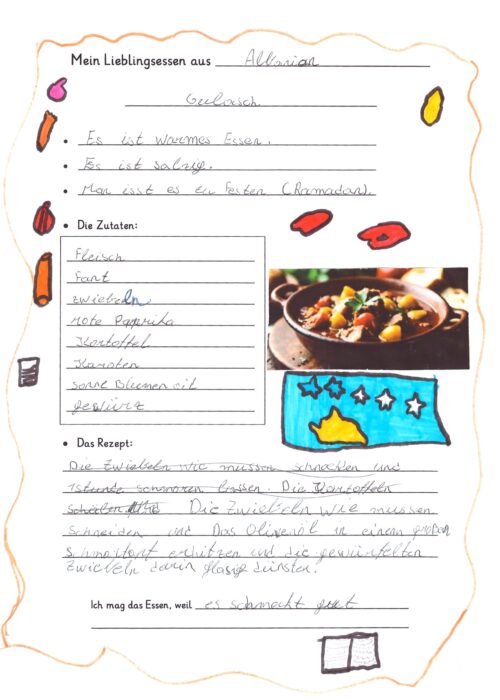 Mein Lieblingsessen aus Albanian
Gulasch
• Es ist warmes Essen.
• Es ist salzig.
• Man isst es zu Festen (Ramadan).
• Die Zutaten:
Fleisch
Fant
zwiebeln
rote Paprika
Kartoffel
Karoten
sonne Blumen oil
gewürz
• Das Rezept:
Die Zwiebeln wie müssen schneiden und
1 stunde schmoren lassen. Die Kartoffeln
Die Zwiebeln wie müssen
schneiden und Das Olivenöl in einem großen
Schmortopf erhitzen und die gewürfelten
zwiebeln darin glasig dünsten.
Ich mag das Essen, weil es schmeckt gut